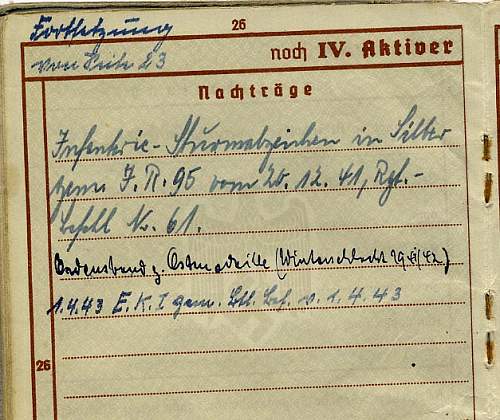 Fortsetzung
26
von Seite 23
noch IV. Aktiver
Nachträge
Infanterie-Sturmabzeichen in Silber
gem. J.R. 95 vom 20.12.41, Rgt.-
befehl Nr. 61.
Ostmedaille (Winterschlacht 1941/42)
1.4.43 E.K.I gem. Btl. Bef. v. 1.4.43
26